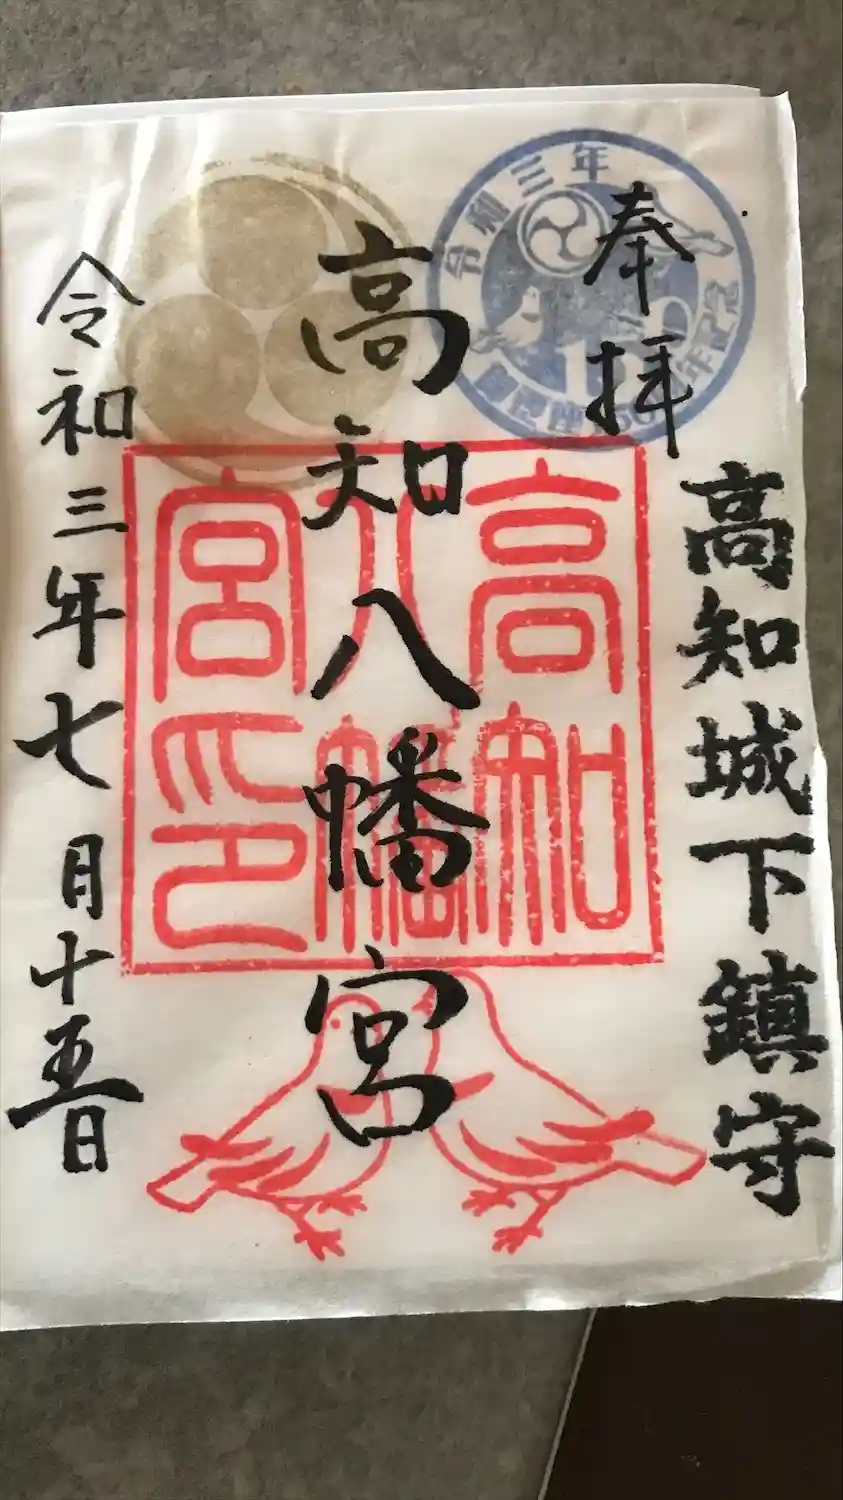 奉拝
高知城下鎮守
高知八幡宮
令和三年七月十五日
令和三年
高知
八幡
宮印